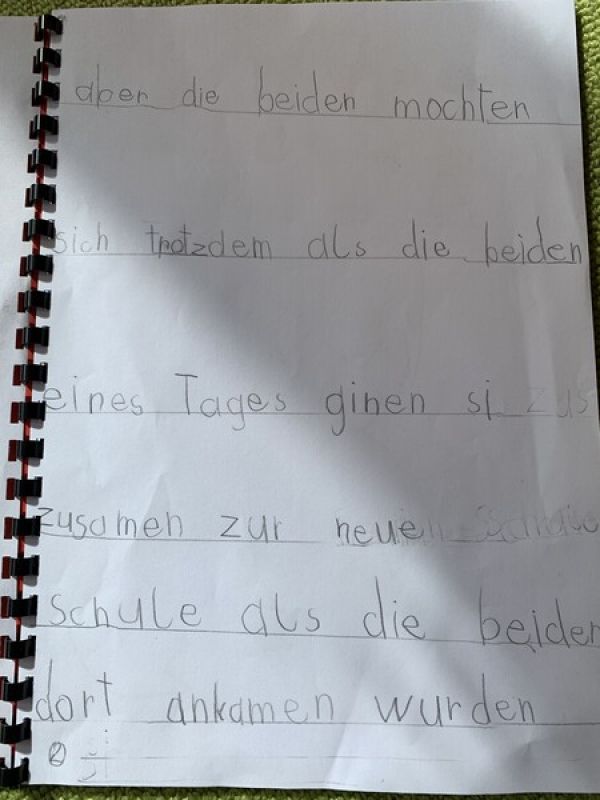 aber die beiden mochten
sich trotzdem als die beiden
eines Tages ginen si
zusamen zur neuen
schule als die beiden
dort ankamen wurden